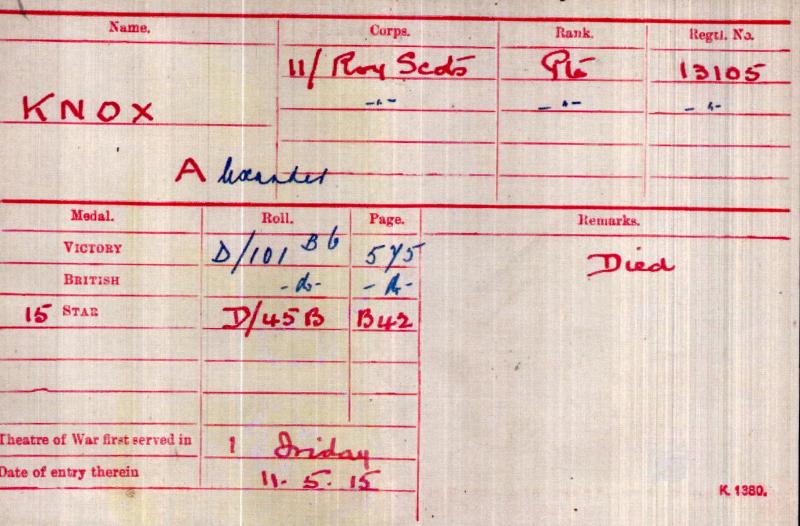 Name. Corps. Rank. Regtl. No.
11/ Roy Scots Pte 13105
KNOX -"- -"- -"-
Alexander
Medal. Roll. Page. Remarks.
VICTORY D/101 B6 575 Died
BRITISH -do- -do-
15 STAR D/45B B42
Theatre of War first served in 1
Date of entry therein 11. 5. 15
K. 1380.